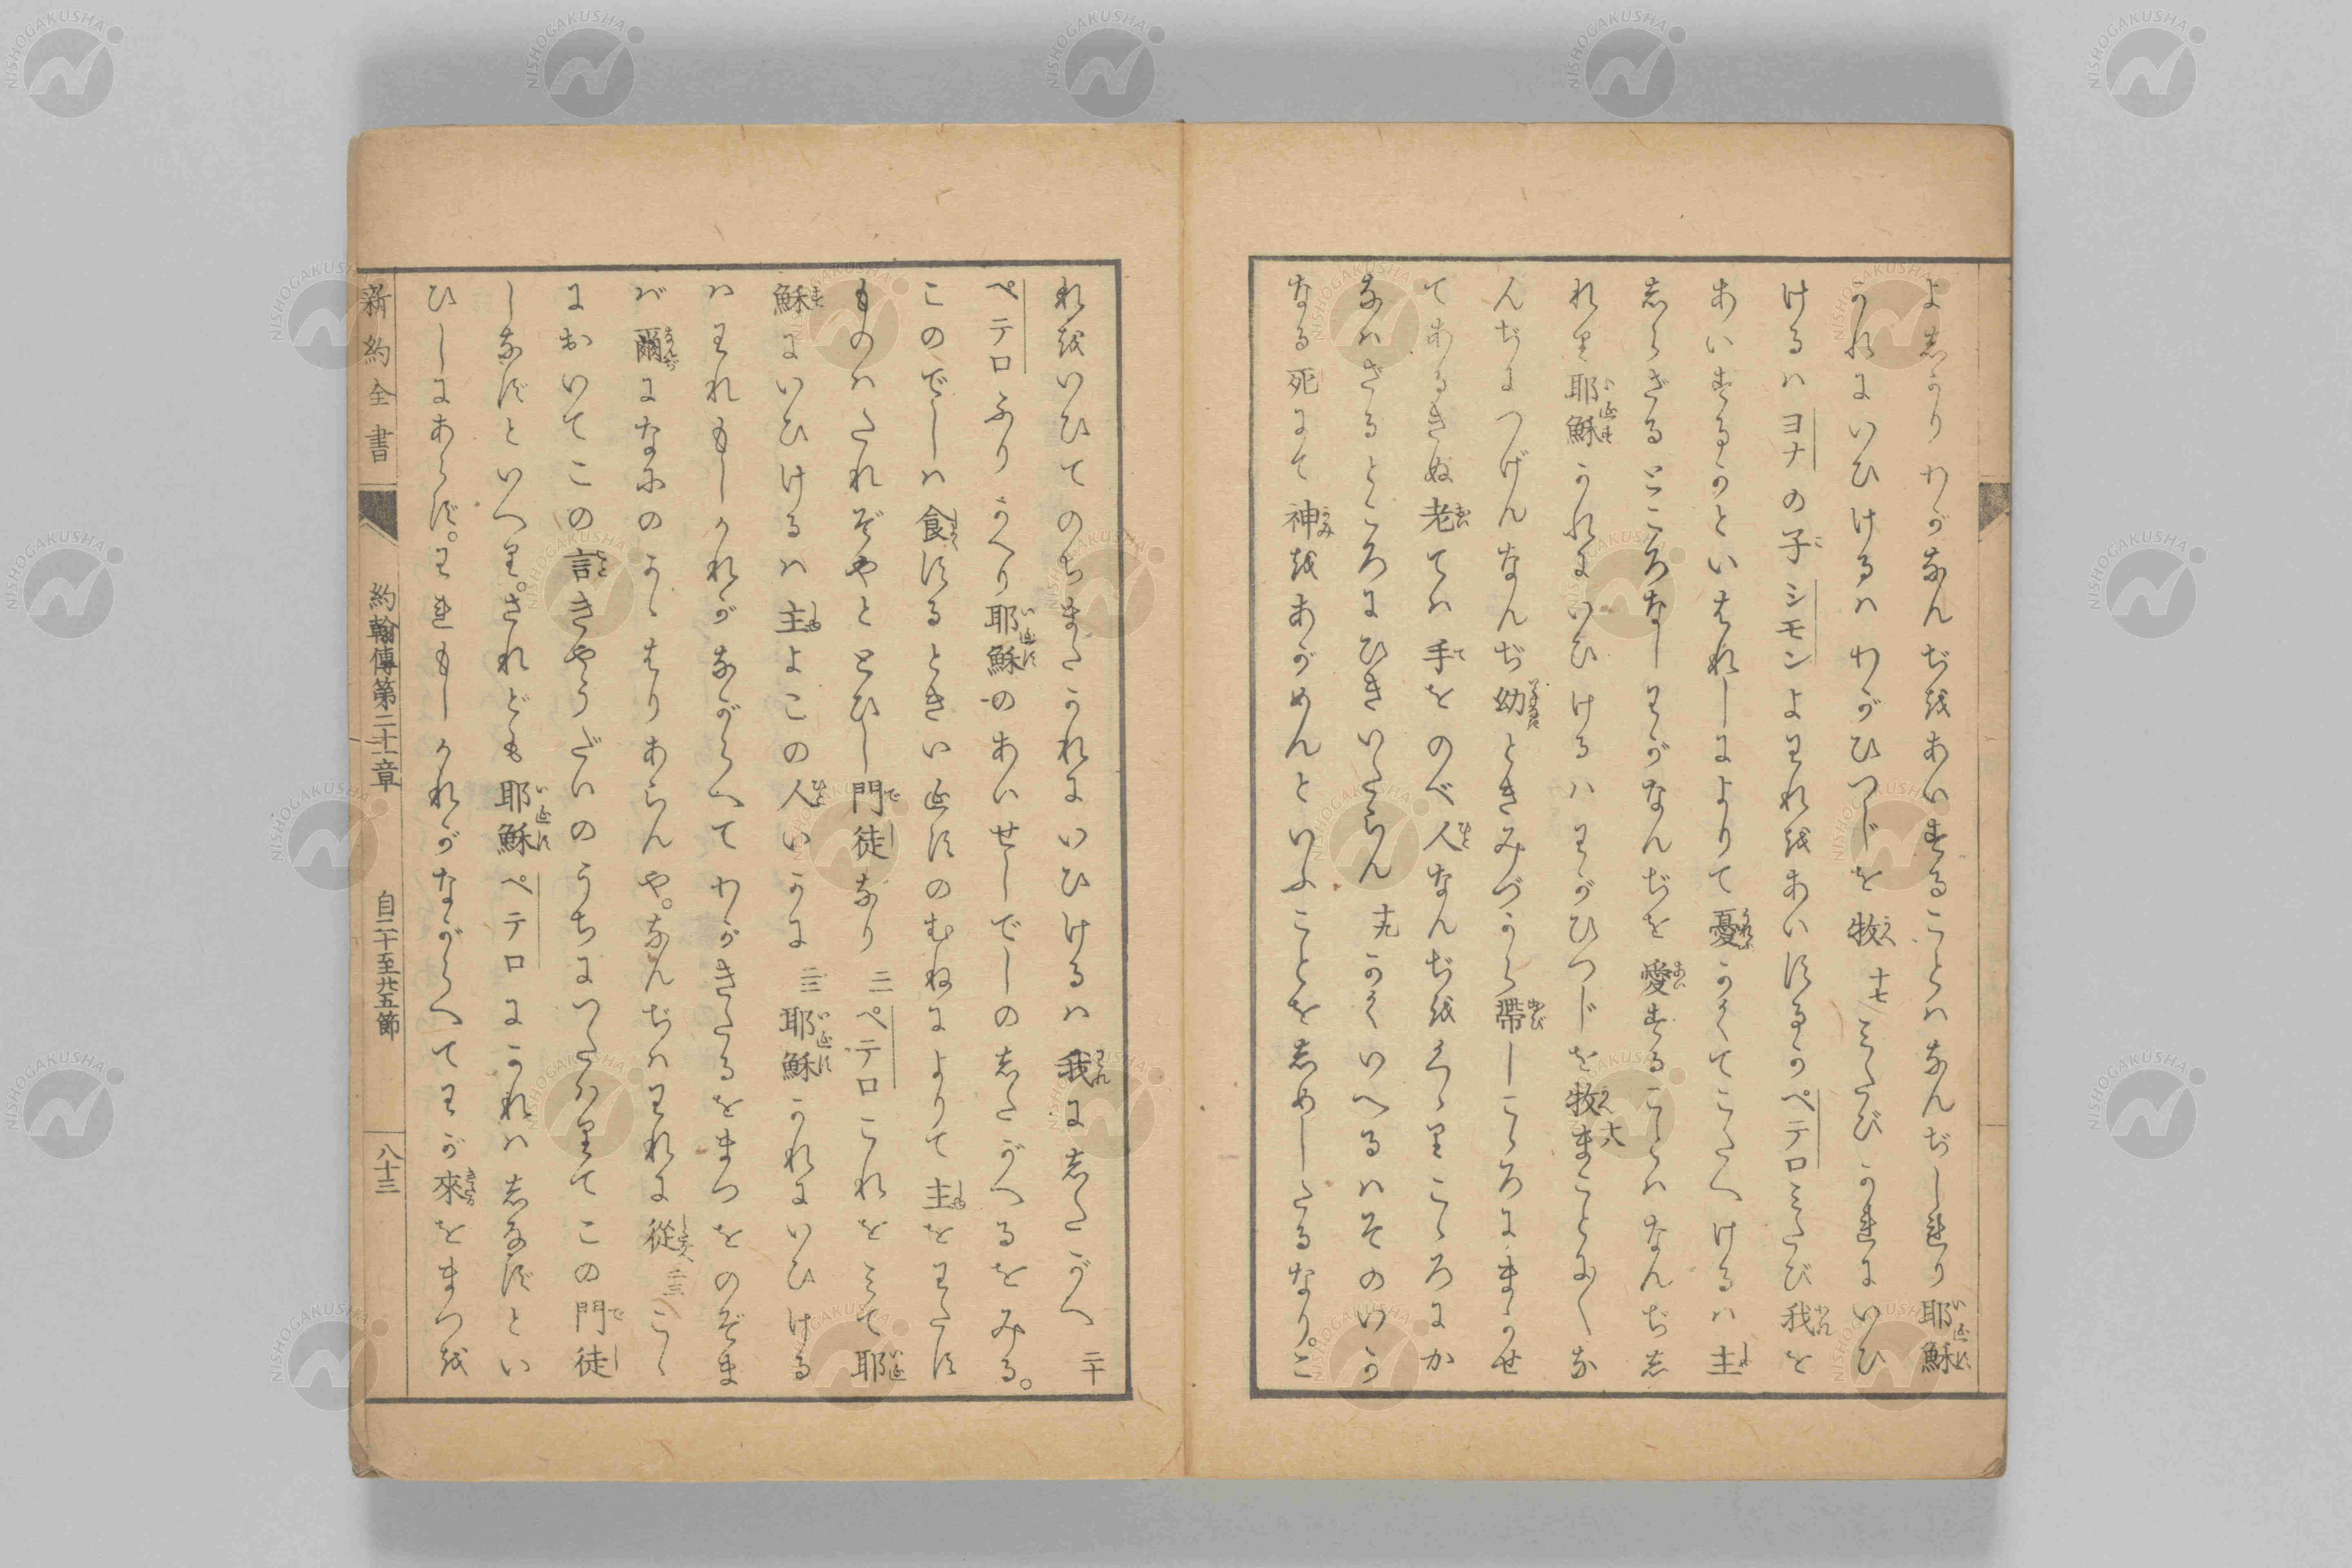 よ志かりわがなんぢをあいすることハなんぢしれり耶穌
かれにいひけるハわがひつじを牧 十七 ミたびかれにいひ
けるハヨナの子シモンよわれをあいするかペテロミたび我を
あいするかといはれしによりて憂かくてこたへけるハ主
志らざるところなしわがなんぢを愛することハなんぢ志
れり耶穌かれにいひけるハわがひつじを牧 十八 まことにな
んぢにつげんなんぢ幼ときみづから帯しこゝろにまかせ
てあるきぬ老てハ手をのべ人なんぢをくゝりこゝろにか
なハざるところにひきいたらん 十九 かくいへるハそのいか
なる死にて神をあがめんといふことを志めしたるなり。こ
れをいひてのちまたかれにいひけるハ我に志たがへ 二十
ペテロふりかへり耶穌のあいせしでしの志たがへるをみる。
このでしハ食するときいエスのむねによりて主をわたす
ものハたれぞやととひし門徒なり 二一 ペテロこれをミて耶
穌にいひけるハ主よこの人いかに 二二 耶穌かれにいひける
ハわれもしかれがながらへてわがきたるをまつをのぞま
バ爾になにのかゝはりあらんや。なんぢハわれに從へ 二三 こゝ
においてこの言きやうだいのうちにいたハりてこの門徒
しなずといへり。されども耶穌ペテロにかれハ志なずとい
ひしにあらず。われもしかれがながらへてわが來をまつを
新約全書 約翰傳第二十一章 自二十至廿五節 八十三
NISHOGAKUSHA